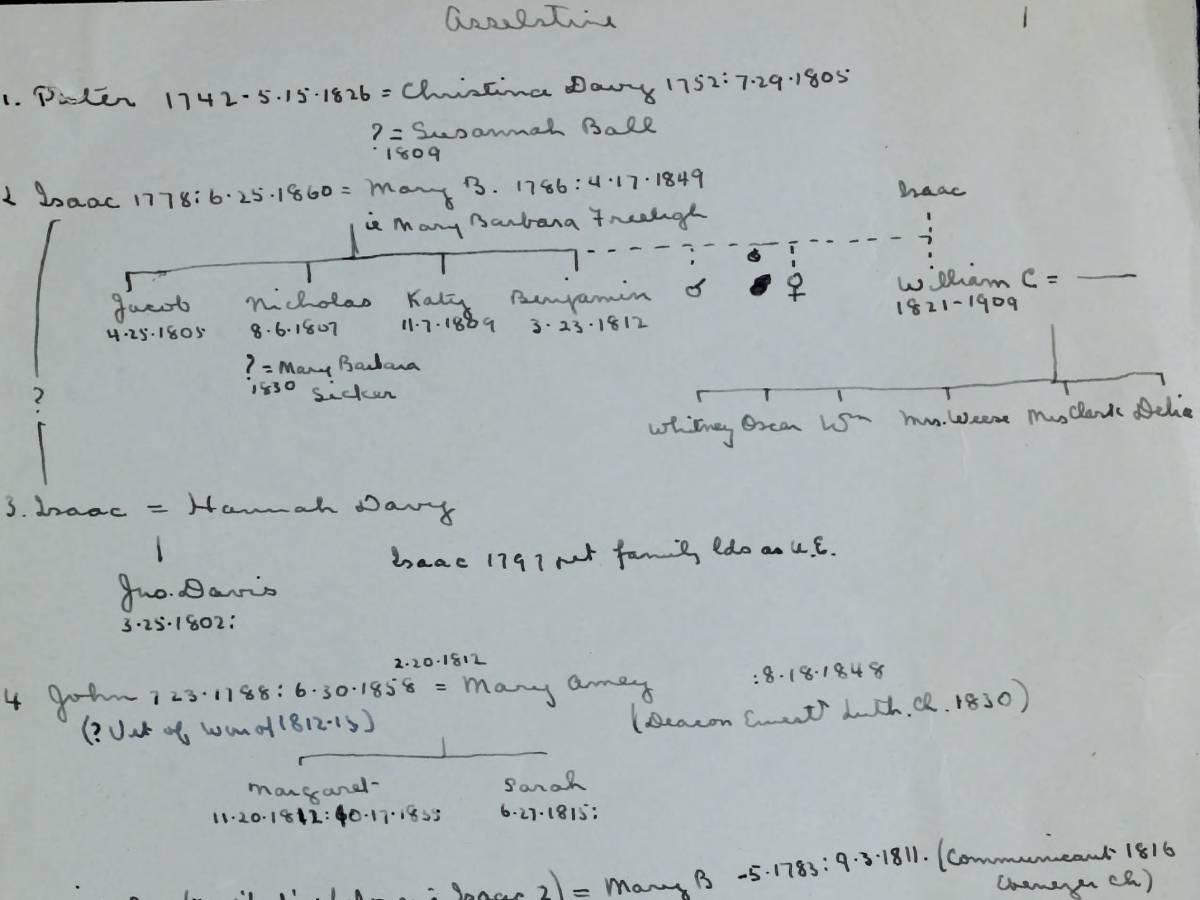 Asselstine
1
1. Peter 1742-5.15.1826 = Christina Davy 1752:7.29.1805
? = Susannah Ball
1809
2 Isaac 1778:6.25.1860 = Mary B. 1786:4.17.1849
ie Mary Barbara Freeligh
Isaac
Jacob Nicholas Katy Benjamin ♂ ♀ William C =
4.25.1805 8.6.1807 11.7.1809 3.23.1812 1821-1909
? = Mary Barbara
1830 Sicker
?
Whitney Oscar Wm Mrs. Weese Mrs Clark Delia
3. Isaac = Hannah Davy
Isaac 1797 pet family lds as U.E.
Jno. Davis
3.25.1802:
2.20.1812
4 John 7 23.1788:6.30.1858 = Mary Amey :8.18.1848
(? Vet of War of 1812-15) (Deacon Ernest Luth. Ch. 1830)
Margaret Sarah
11.20.1812:10.17.1855 6.27.1815:
Isaac 2) = Mary B -5.1783:9.3.1811. (Communicant 1816
Ebenezer Ch)